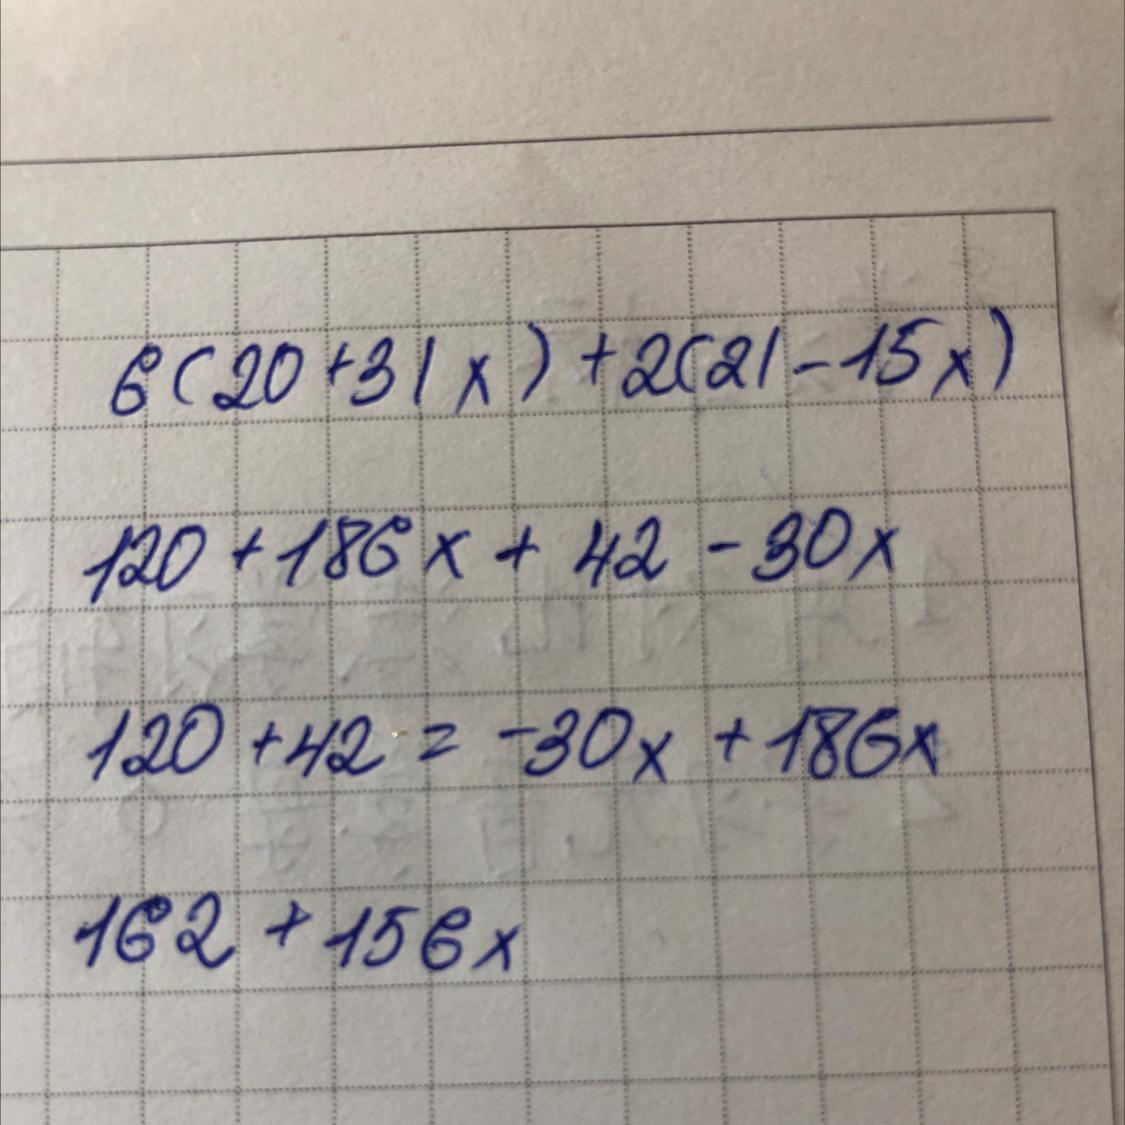 6(20+31x)+2(21-15x)
120+186x+42-30x
120+42=-30x+186x
162+156x